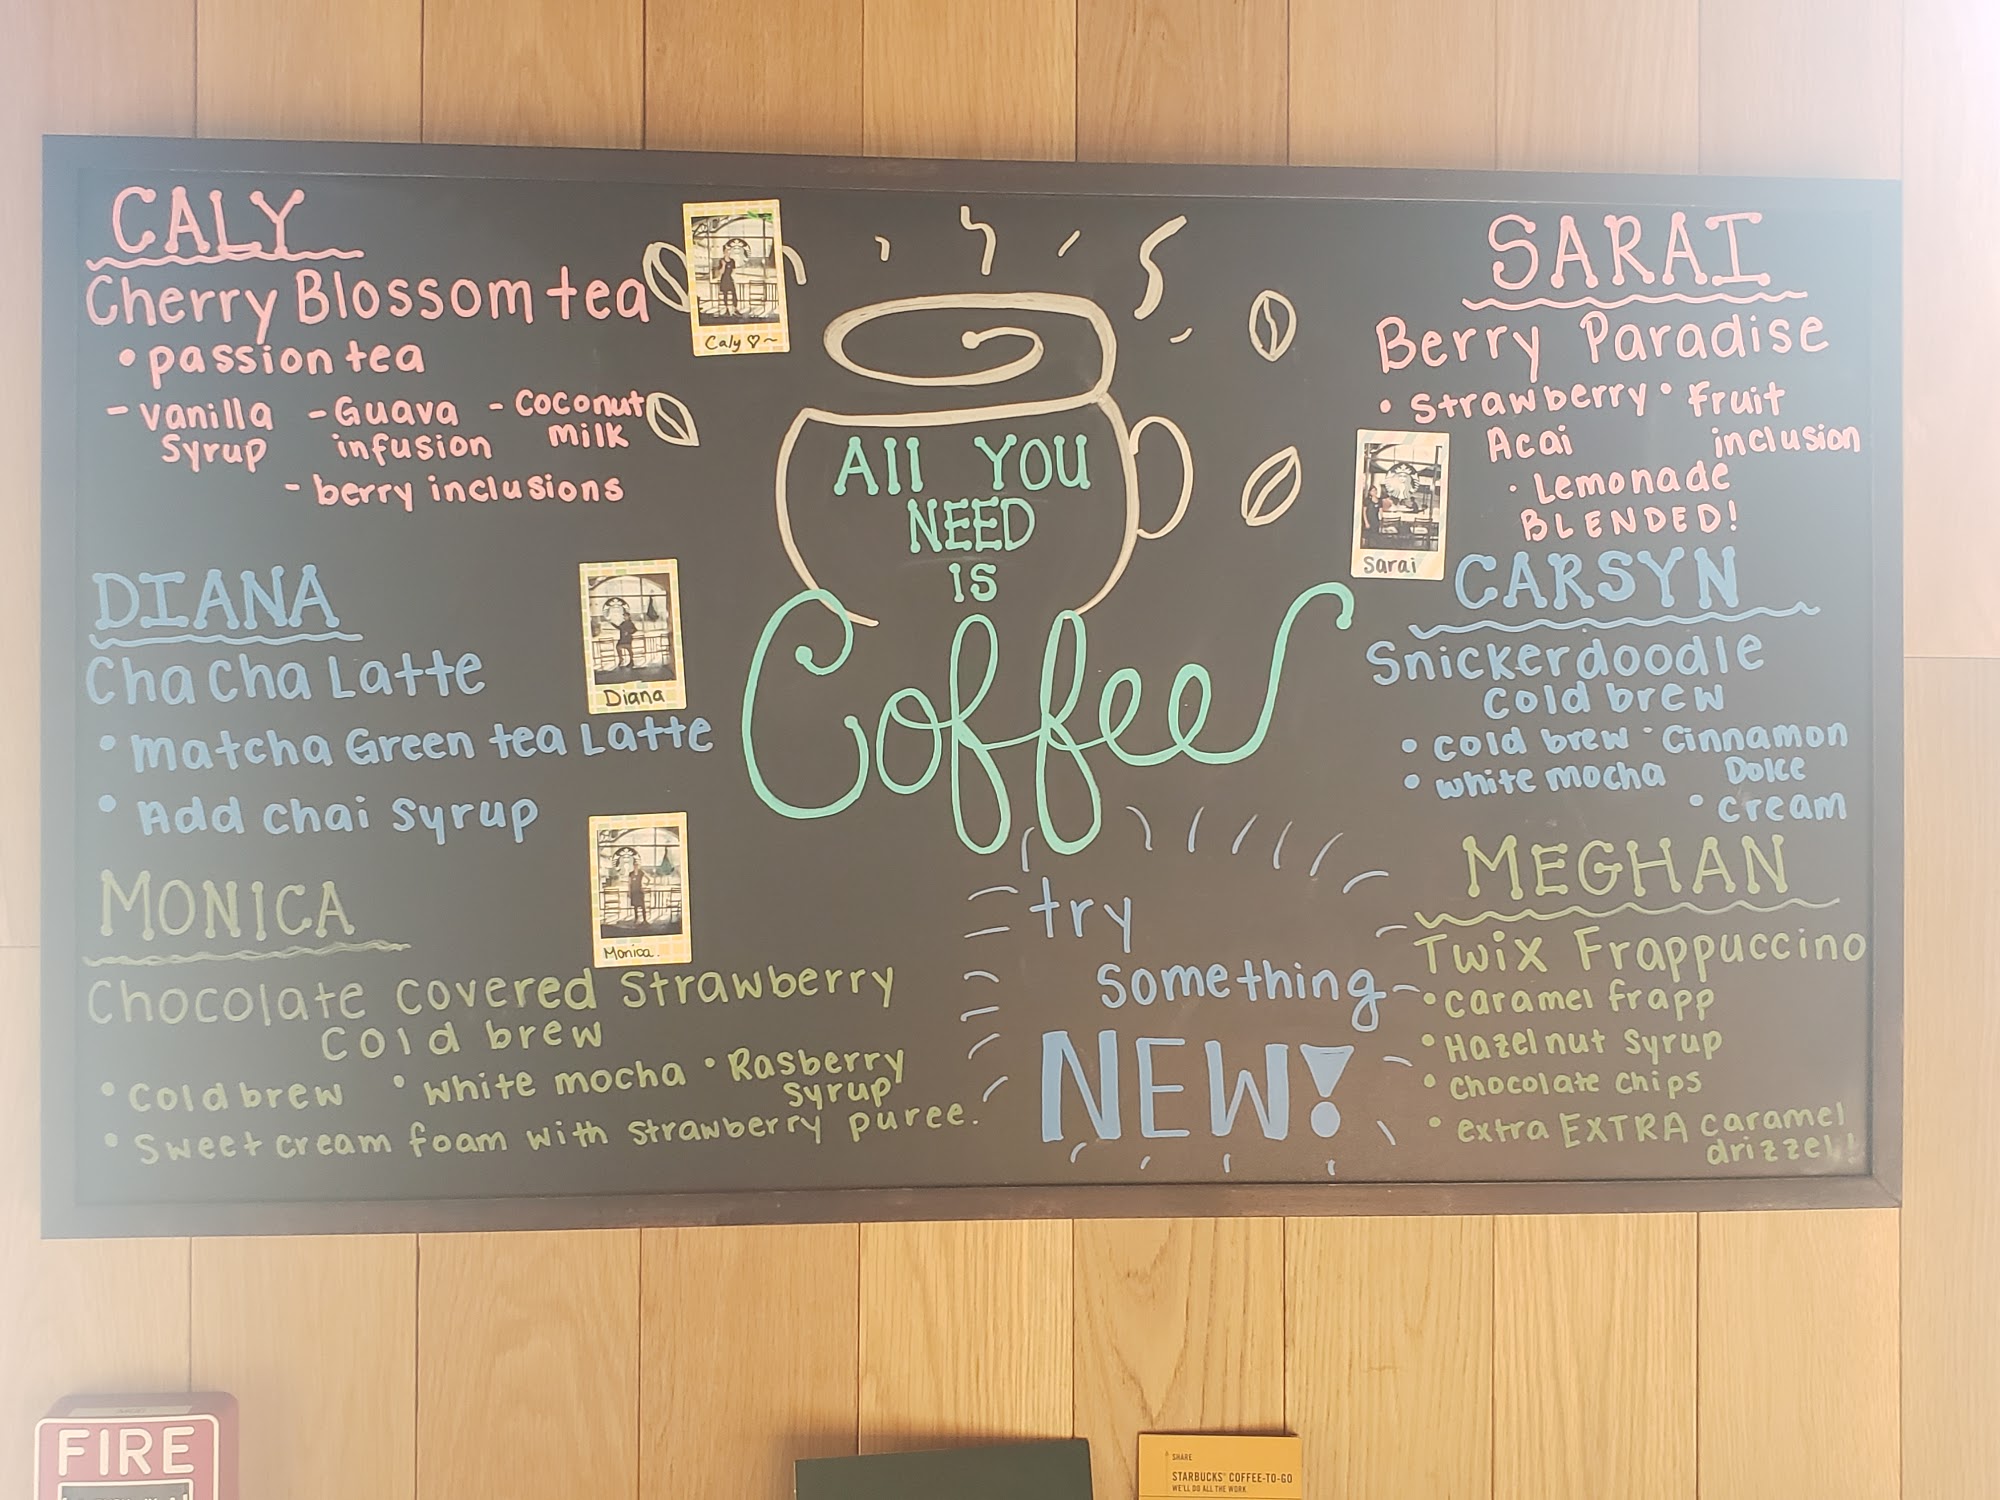 CALY
Cherry Blossom tea
• passion tea
- vanilla syrup
- Guava infusion
- coconut milk
- berry inclusions
Caly ♡~
DIANA
Cha Cha Latte
• matcha Green tea Latte
• Add chai syrup
Diana
MONICA
Chocolate covered Strawberry
cold brew
• cold brew • white mocha • Rasberry syrup
• sweet cream foam with strawberry puree.
Monica.
All YOU
NEED
IS
Coffee
try
something
NEW!
SARAI
Berry Paradise
• strawberry Acai
• fruit inclusion
· Lemonade
BLENDED!
Sarai
CARSYN
Snickerdoodle
cold brew
• cold brew
• white mocha
· Cinnamon Dolce
• cream
MEGHAN
Twix Frappuccino
• caramel frapp
• Hazelnut syrup
• chocolate chips
• extra EXTRA caramel
drizzel!
FIRE
SHARE
STARBUCKS® COFFEE-TO-GO
WE'LL DO ALL THE WORK